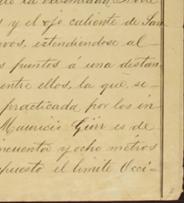 s y el ojo caliente de San
vos, estendiendose al
s puntos á una distan
entre ellos, la que, se
practicada por los in
Mauricio Giur es de
incuenta y ocho metros
puesto el limite Occi-